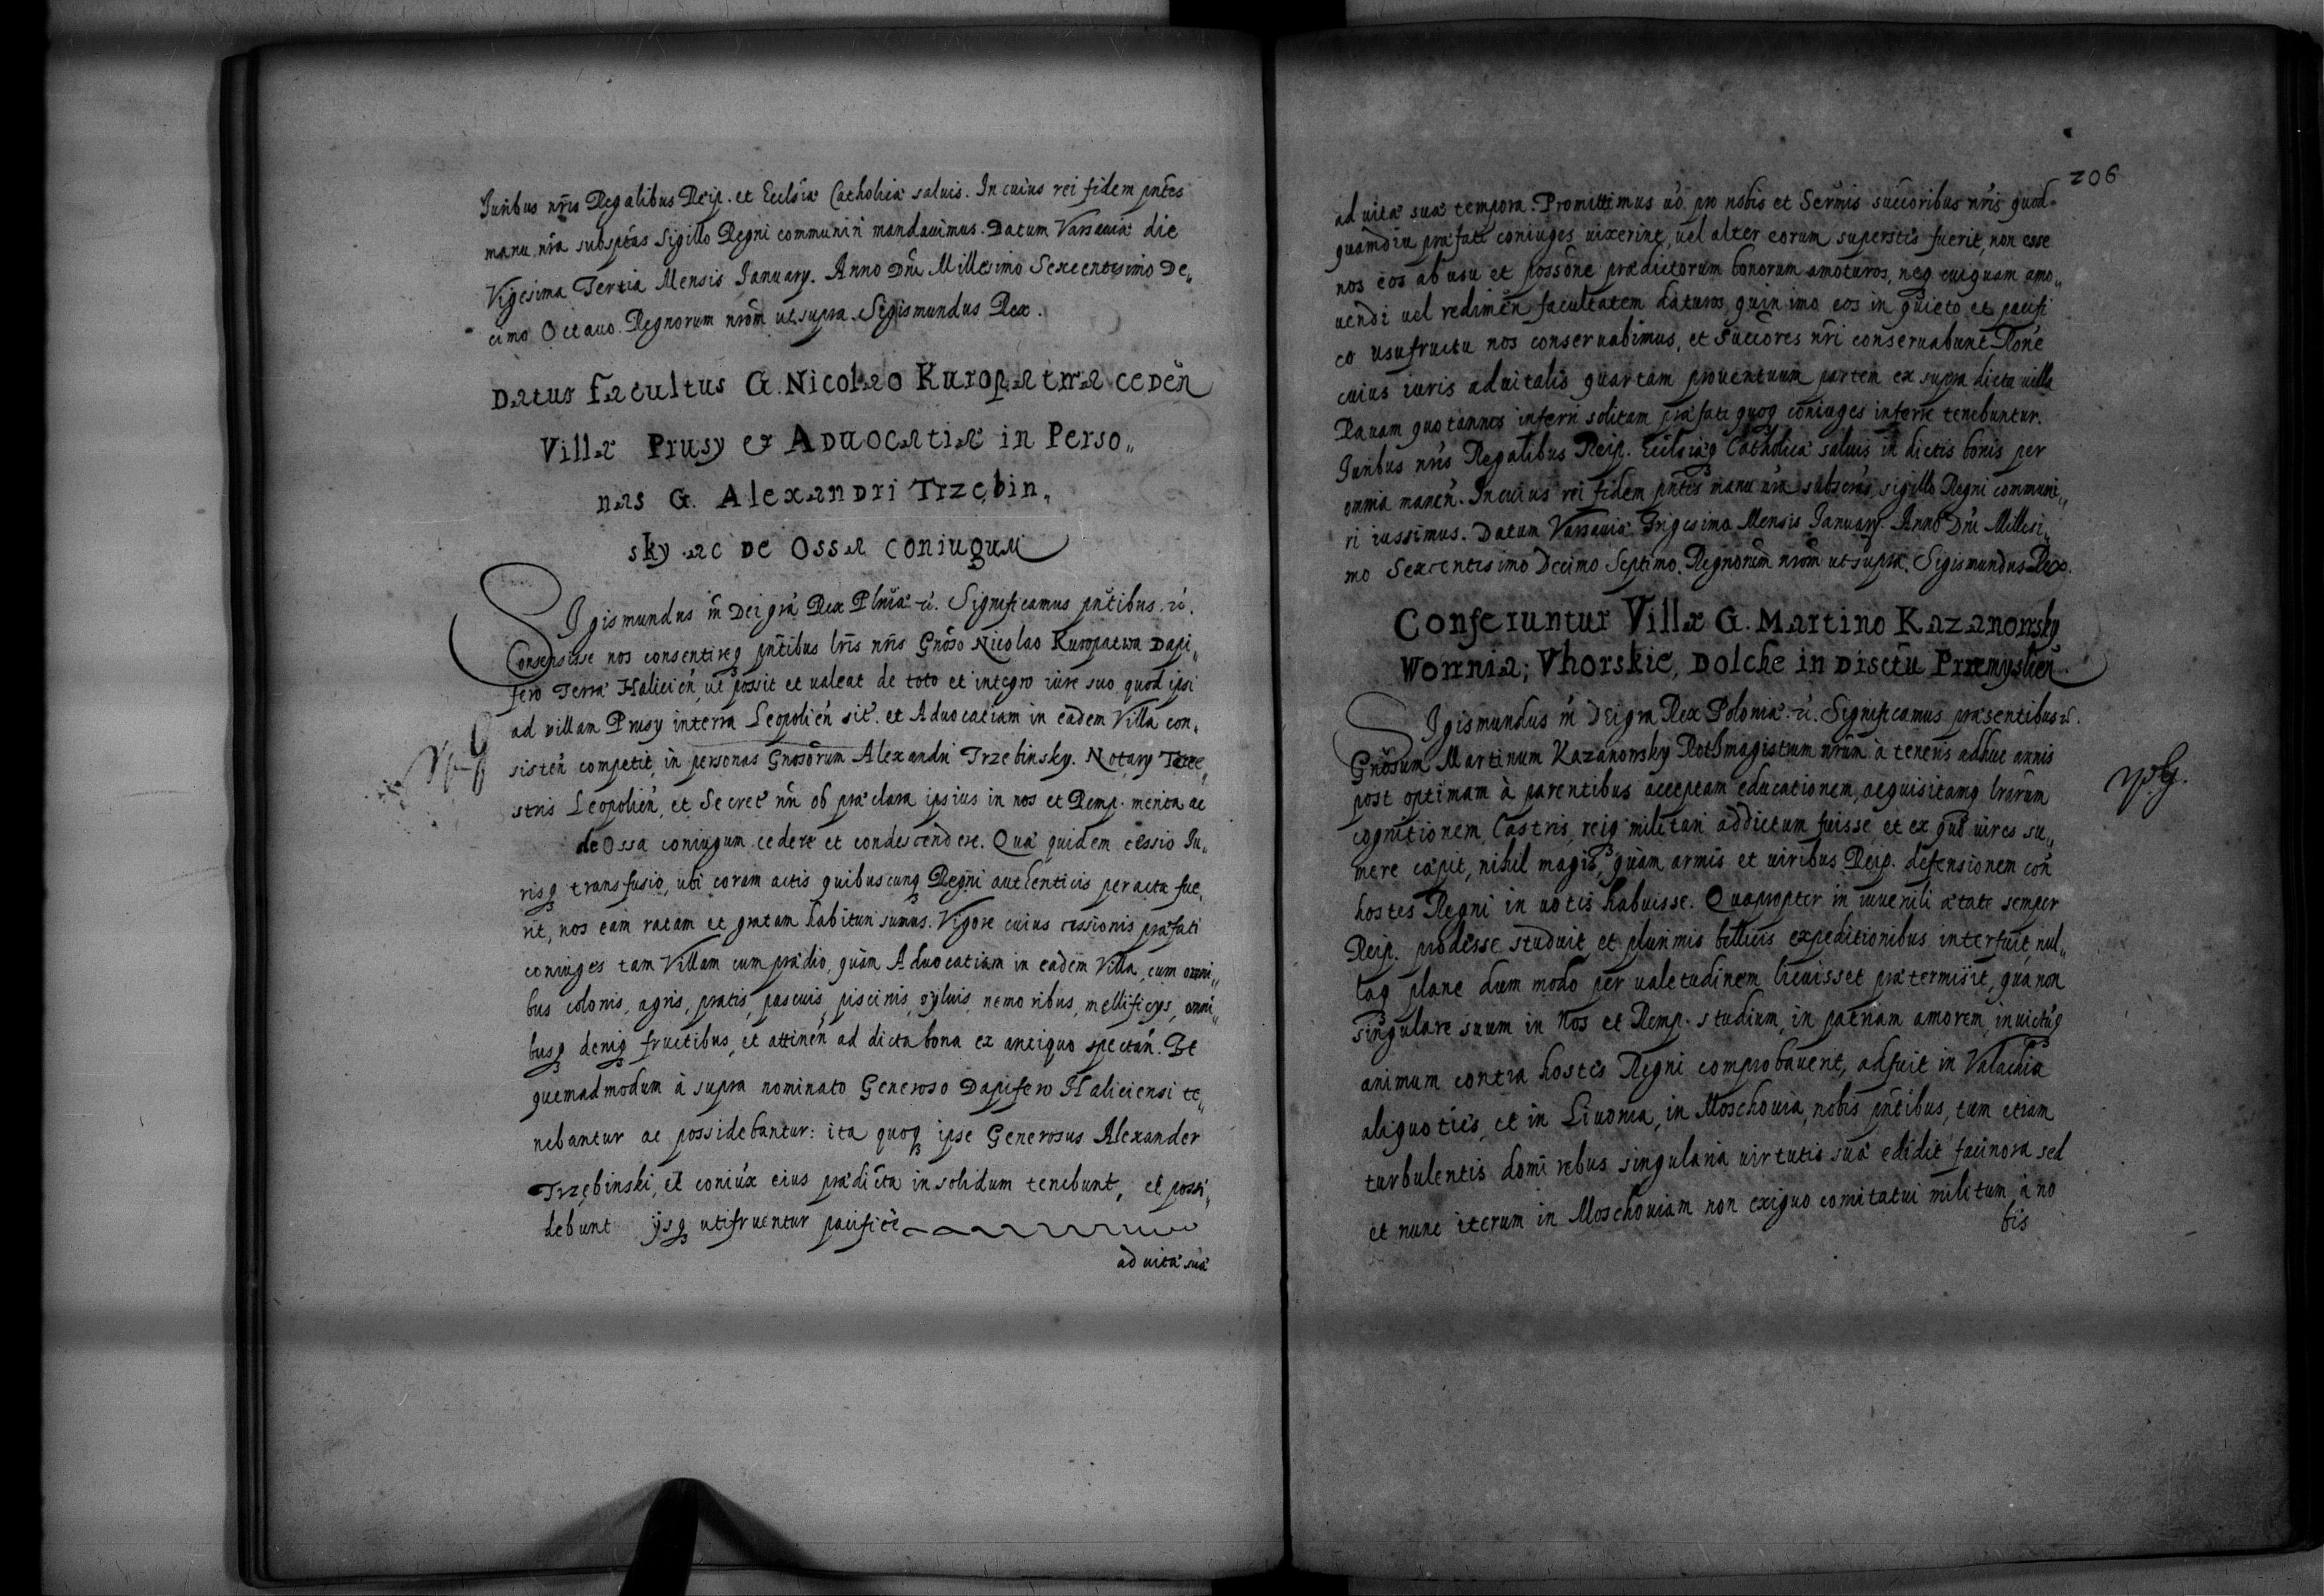 Juribus nr̃is Regalibus Reip. et Ecclsiæ Catholicæ saluis. In cuius rei fidem pñtes
manu nr̃a subsptas Sigillo Regni communiri mandauimus. Datum Varsauiæ die
Vigesima Tertia Mensis January. Anno Dñi Millesimo Sexcentesimo De„
cimo Octauo. Regnorum nrõm ut supra. Sigismundus Rex.
Datur facultus G. Nicolao Kuropatwa ceden̄
Villæ Prusy et Aduocatiæ in Perso„
nas G. Alexandri Trzębin„
sky ac de Ossa coniugum
Sigismundus iii Dei grã Rex Plniæ etc. Significamus pñtibus. etc.
Consensisse nos consentireq pñtibus lr̃is nr̃is Gnõso Nicolao Kuropatwa Dapi„
fero Terræ Halicien̄, ut possit et ualeat de toto et integro iure suo quod ipsi
ad villam Prusy in terra Leopolien̄ sit. et Aduocatiam in eadem Villa con„
sisten̄ competit, in personas Gnosorum Alexandri Trzebinsky. Notary Terre„
stris Leopolien̄, et Secret nr̃i ob præclara ipsius in nos et Remp. merita ac
de Ossa coniugum cedere et condescendere. Quæ quidem cessio Ju„
risq transfusio, ubi coram actis quibuscunq Regni autenticis peracta fue„
rit, nos eam ratam et gratam habituri sumus. Vigore cuius cessionis præfati
coniuges tam Villam cum prædio, quàm Aduocatiam in eadem Villa, cum omni„
bus colonis, agris, pratis, pascuis, piscinis, syluis, nemoribus, mellificys, omni„
busq deniq fructibus, et attinen̄ ad dicta bona ex antiquo spectan̄. Et
quemadmodum à supra nominato Generoso Dapifero Haliciensi te„
nebantur ac possidebantur: ita quoq ipse Generosus Alexander
Trzębinski, et coniux eius prædicta in solidum tenebunt, et possi„
debunt ijsq utifruentur pacificè
ad uitæ suæ
206
ad uitæ suæ tempora. Promittimus uõ pro nobis et Sermis succoribus nr̃is quod
quamdiu præfati coniuges uixerint, uel alter eorum superstes fuerit, non esse
nos eos ab usu et possõne prædictorum bonorum amoturos, neq cuiquam amo„
uendi uel redimen̄ facultatem daturos, quin imo eos in quieto et pacifi
co usufructu nos conseruabimus, et succõres nr̃i conseruabunt Rõne
cuius iuris aduitalis quartam prouentuum partem ex supra dicta uilla
Rauam quotannis inferri solitam præfati quoq coniuges inferre tenebuntur.
Juribus nr̃is Regalibus Reip. Ecclsiæq Catholicæ saluis in dictis bonis per
omnia manen̄. In cuius rei fidem pñtes manu nr̃a subscras sigillo Regni communi„
ri iussimus. Datum Varsauiæ Trigesima Mensis January. Anno Dñi Millesi„
mo Sexcentesimo Decimo Septimo. Regnorum nrõm ut supra. Sigismundus Rex.
Conferuntur Villæ G. Martino Kazanowsky
Wornia; Vhorskie, Dolche in Disctu Præmyslien̄
Sigismundus iii Dei gra Rex Poloniæ. etc. Significamus præsentibus etc.
Gnõsum Martinum Kazanowsky Rothmagistrum nr̃um à teneris adhuc annis
post optimam à parentibus acceptam educationem, acquisitamq lrarum
cognitionem, Castris, reiq militari addictum fuisse, et ex quo uires su„
mere cæpit, nihil magis, quàm armis et uiribus Reip. defensionem con̄
hostes Regni in uotis habuisse. Quapropter in iuuenili ætate semper
Reip. prodesse studuit, et plurimis bellicis expeditionibus interfuit, nul„
laq plane dum modo per ualetudinem licuisset prætermisit, quà non
singulare suum in Nos et Remp. studium, in patriam amorem, inuictuq
animum contra hostes Regni comprobauerit, adfuit in Valachia
aliquoties, et in Liuonia, in Moschouia, nobis pñtibus, tum etiam
turbulentis domi rebus singularia uirtutis suæ edidit facinora sed
et nunc iterum in Moschouiam non exiguo comitatui militum, à no
bis